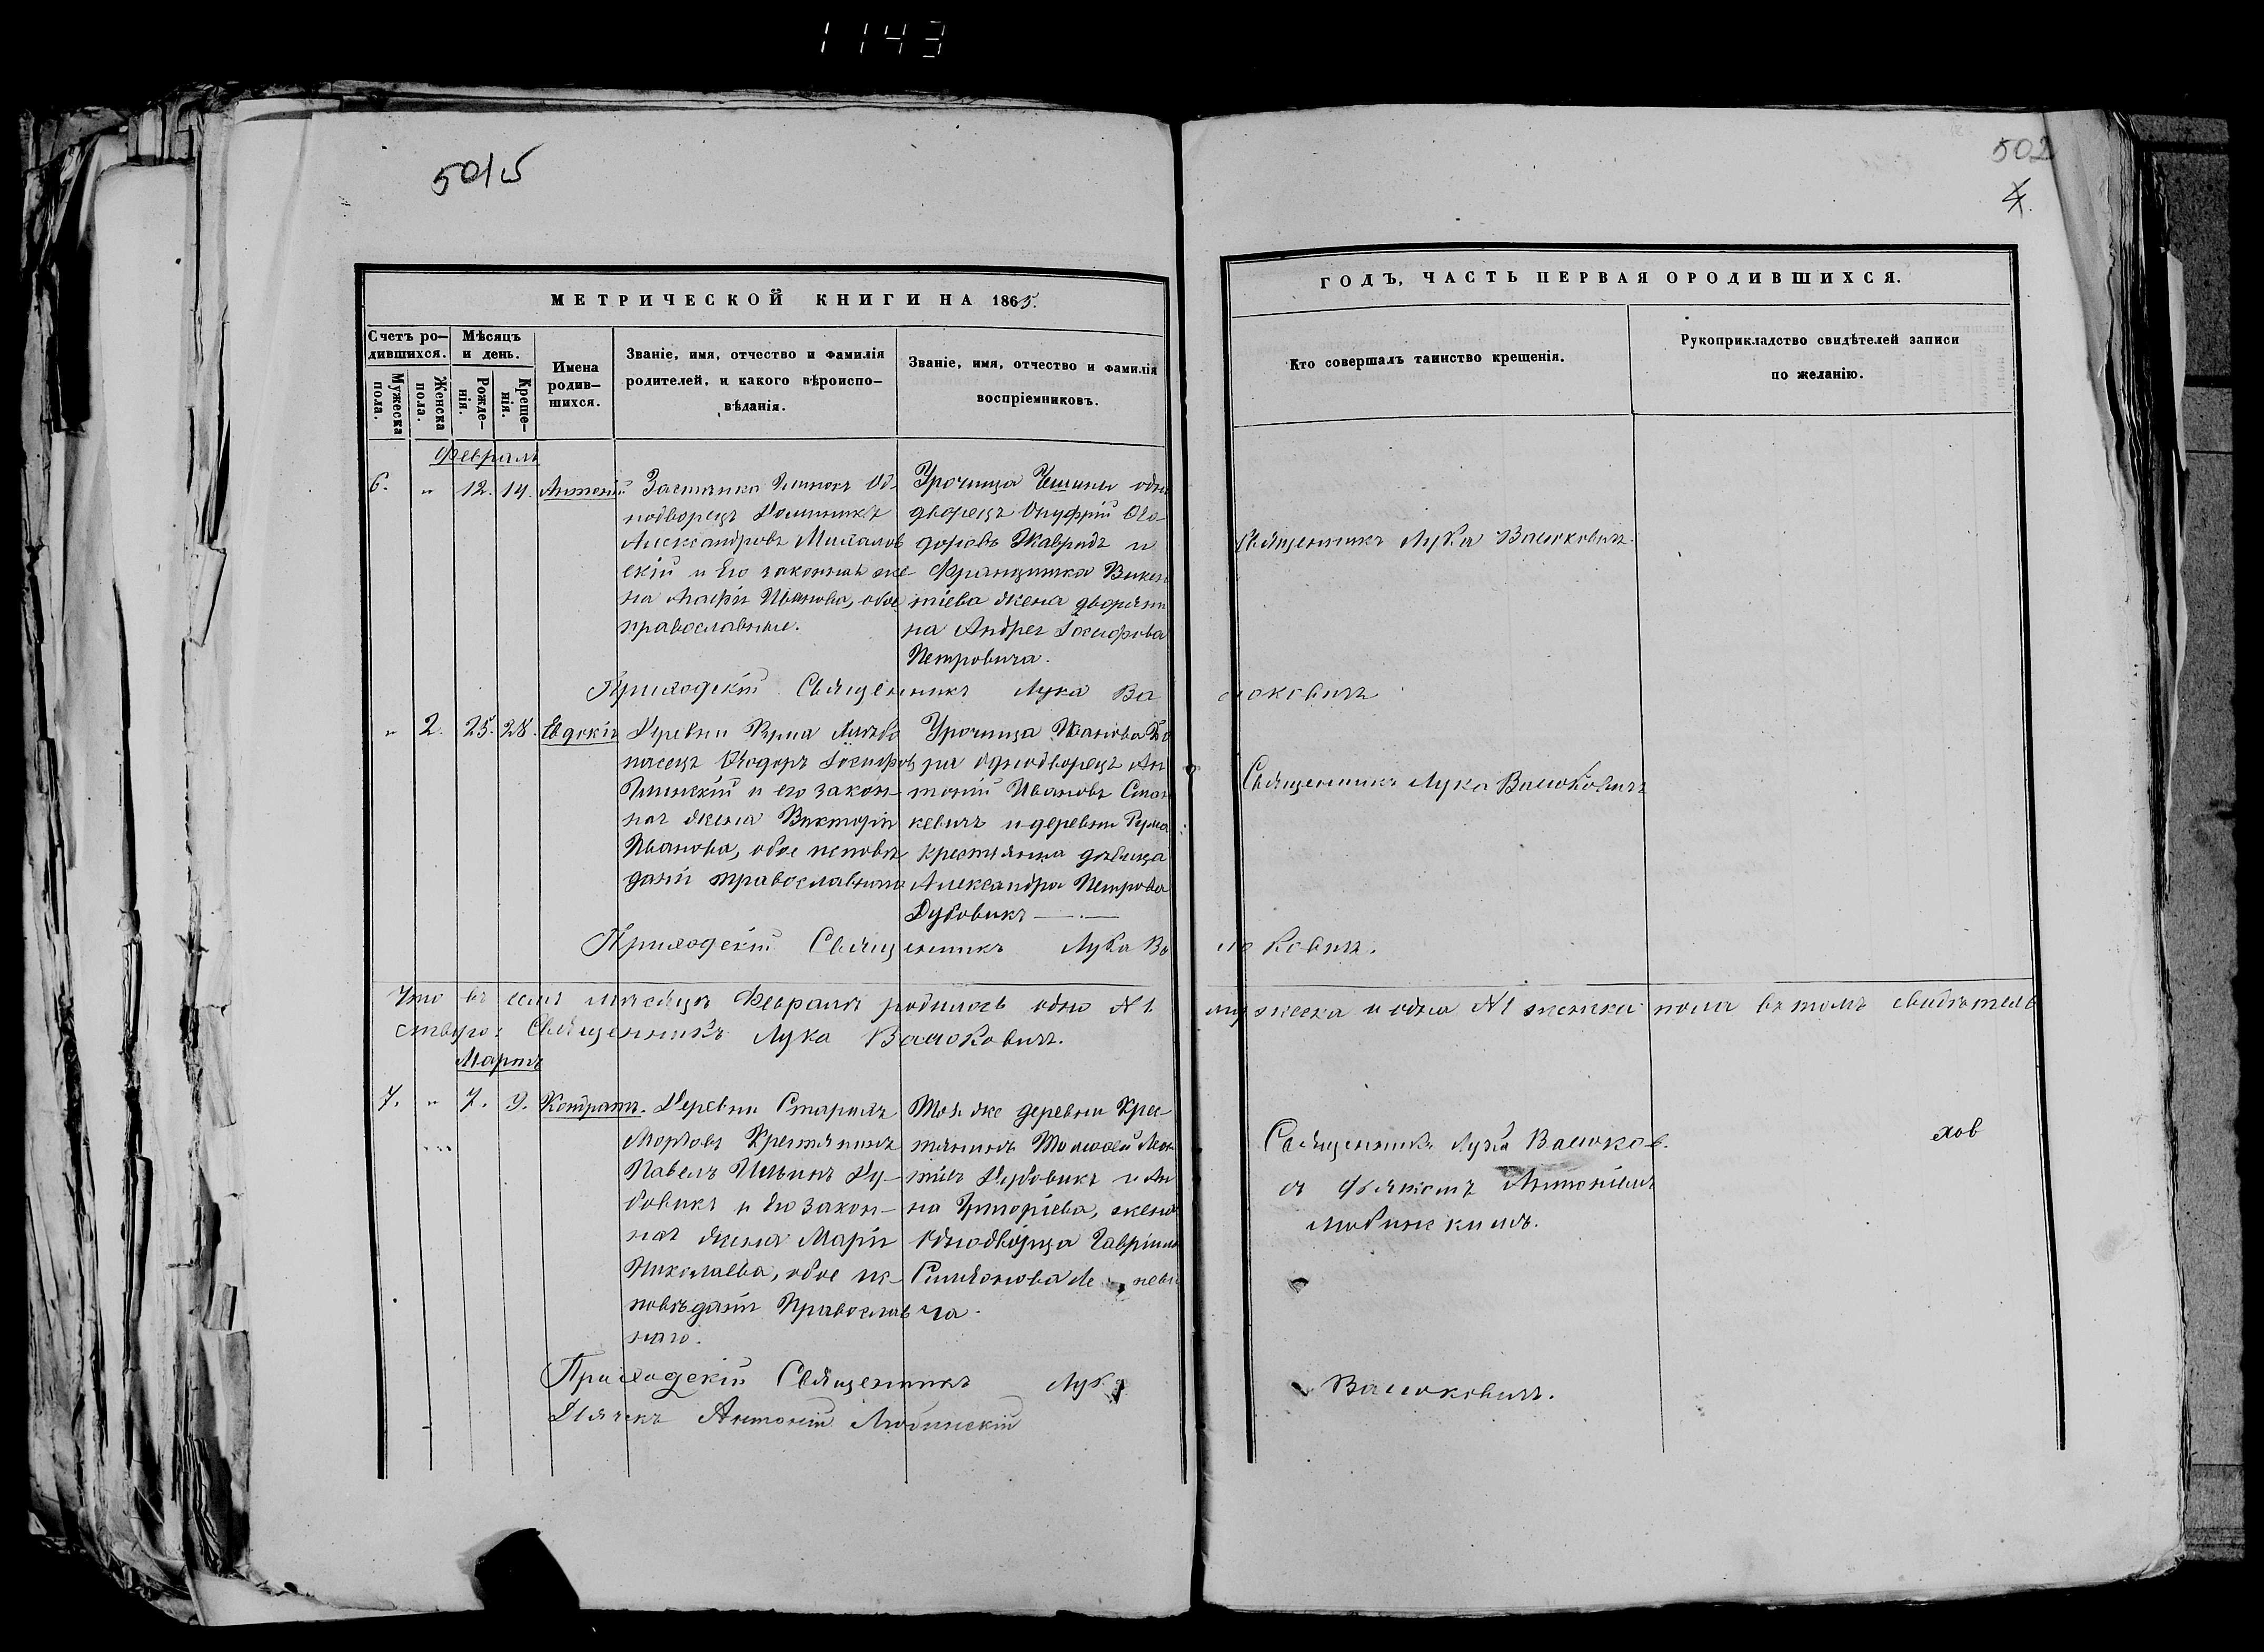 1143
501 5
502
4.
МЕТРИЧЕСКОЙ КНИГИ НА 1865.
ГОДЪ, ЧАСТЬ ПЕРВАЯ О РОДИВШИХСЯ.
Счетъ ро-
дившихся.
Мужеска
пола.
Женска
пола.
Мѣсяцъ
и день.
Рожде-
нія.
Креще-
нія.
Имена
родив-
шихся.
Званіе, имя, отчество и фамилія
родителей, и какого вѣроиспо-
вѣданія.
Званіе, имя, отчество и фамилія
воспріемниковъ.
Кто совершалъ таинство крещенія.
Рукоприкладство свидѣтелей записи
по желанію.
Февраль
6. " 12. 14. Антоній
Застянка Од-
нодворецъ Доминикъ
Александровъ
скій и Его законная же-
на Марія Иванова, обое
православные.
Урочища одно
дворецъ Онуфрій Ѳео-
доровъ Жавридъ и
Францишка Викен
тіева жена дворяни
на Андрея Іосифова
Петровича.
Священникъ Лука Васюковичъ.
Приходскій Священникъ Лука Ва
сюковичъ
" 2. 25. 28. Евдокія
Деревни
Ѳеодоръ Іосифовъ
и его закон-
ная жена Викторія
Иванова, обое исповѣ
данія православнаго
Урочища
ра Однодворецъ Ан
тоній Ивановъ Стан
кевичъ и деревни
крестьянка дѣвица
Александра Петрова
Дубовикъ
Священникъ Лука Васюковичъ
Приходскій Священникъ Лука Ва
сюковичъ.
Что въ семъ мѣсяцѣ Февралѣ родилось одно N 1. мужеска и одна N 1 женска пола въ томъ свидѣтель
ствую: Священникъ Лука Васюковичъ.
Мартъ
7. " 7. 9. Кондратъ.
Деревни Старыхъ
Крестьянинъ
Павелъ Ильинъ Ду-
бовикъ и Его закон-
ная жена Марія
Николаева, обое ис-
повѣданія Православ
наго.
Той же деревни Крес-
тьянинъ
Дубовикъ и Ан
на Григоріева, жена
Однодворца Гавріила
Симеонова
ча.
Священникъ Лука Васюков.
съ Дьячкомъ Антоніемъ
Любинскимъ.
хов
Приходскій Священникъ Лука
Васюковичъ.
Дьячекъ Антоній Любинскій